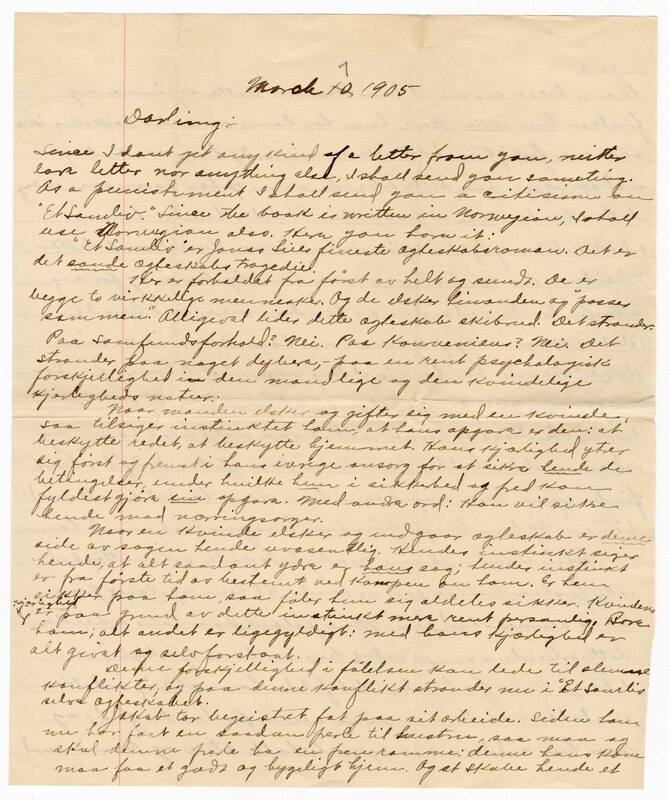 March 10 1905
7
Darling:
Since I dont get any kind of a letter from you, neither
love letter nor anything else, I shall send you someting.
As a punishment I shall send you a critisism on
"Et Samliv." Since the book is written in Norwegian, I shall
use Norwegian also. Here you have it:
"Et Samliv" er Jonas Lies fineste ægteskabsroman. Det er
det sande ægteskabs tragedie.
Her er forholdet fra först av helt og sundt. De er
begge to virkelige mennesker. Og de elsker hinanden og "passer
sammen". Alligevel lider dette ægteskab skibrud. Det strander.
Paa samfundsforhold? Nei. Paa konveniens? Nei. Det
strander paa noget dybere, - paa en rent psychologisk
forskjellighed in den mandlige og den kvindelige
kjærligheds natur.
Naar manden elsker og gifter sig med en kvinde,
saa tilsiger instinktet ham, at hans opgave er den: at
beskytte redet, at beskytte hjemmet. Hans kjærlighed yter
sig först og fremst i hans ivrige omsorg for at sikre hende de
betingelser, under hvilke hun i sikkerhed og fred kan
fyldestgjöre sin opgave. Med andre ord: han vil sikre
hende mod næringssorger.
Naar en kvinde elsker og indgaar ægteskab er denne
side av sagen hende uvæsentlig. Hendes instinkt siger
hende, at alt saadant ydre er hans sag; hendes instinkt
er fra förste tid av bestemt ved kampen om ham. Er hun
sikker paa ham, saa föler hun sig aldeles sikker. Kvindens
kjærlighed
er paa grund av dette instinkt mere rent personlig. Bare
ham; alt andet er ligegyldigt: med hans kjærlighed er
alt givet og selvforstaat.
Denne forskjellighed i fölelsen kan lede til slemme
konflikter, og paa denne konflikt strander nu i "Et Samliv"
selve ægteskabet.
Jakob tar begeistret fat paa sit arbeide. Siden han
nu har faat en saadan perle til hustru, saa maa og
skal denne perle ha en pen ramme: denne hans kone
maa faa et godt og hyggeligt hjem. Og at skabe hende et